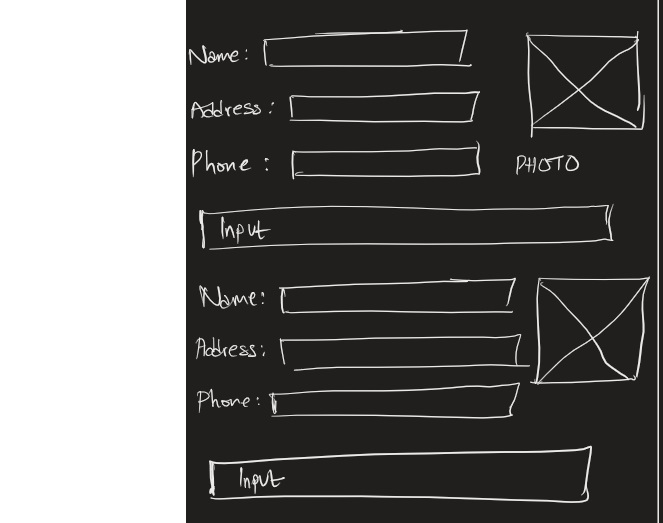 Name:
Address:
Phone:
PHOTO
Input
Name:
Address:
Phone:
Input